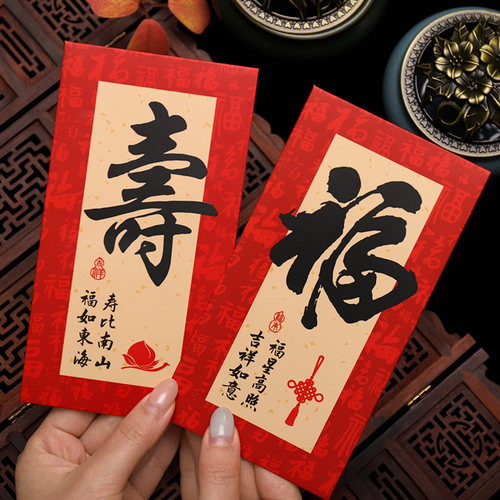 壽
寿比南山
福如東海
福
福星高照
吉祥如意